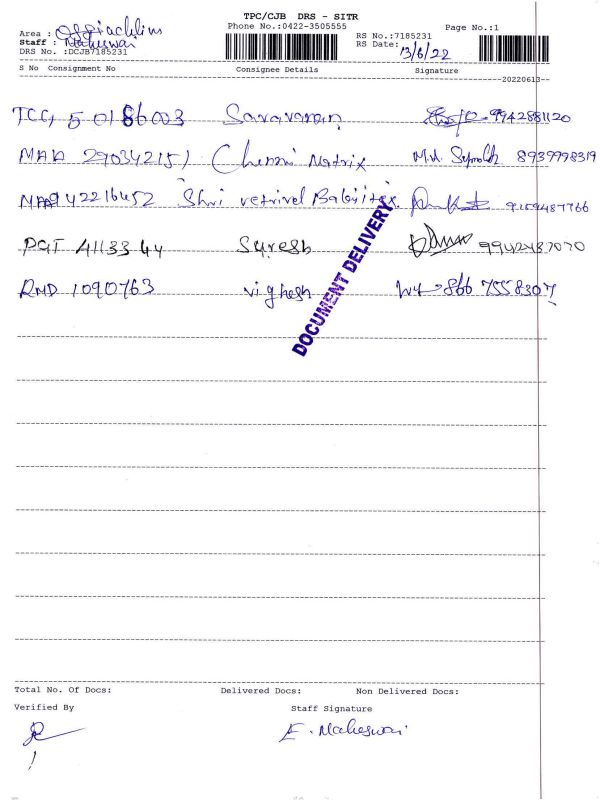 TPC/CJB DRS - SITR
Phone No.:0422-3505555
Page No.:1
Area :
Staff : Maheswari
DRS No. :DCJB7185231
RS No.:7185231
RS Date: 13/6/22
S No Consignment No Consignee Details Signature
20220613
TCG 50186003 Saravanan 9942881120
MAA 290342151 Chennai Matrix 8939998319
MAA942216452 Shri vetrivel 9159487766
PGT 4113344 Suresh 9942487070
RMD 1090763 Vighesh 866 7558307
DOCUMENT DELIVERY
Total No. Of Docs: Delivered Docs: Non Delivered Docs:
Verified By Staff Signature
E. Maheswari